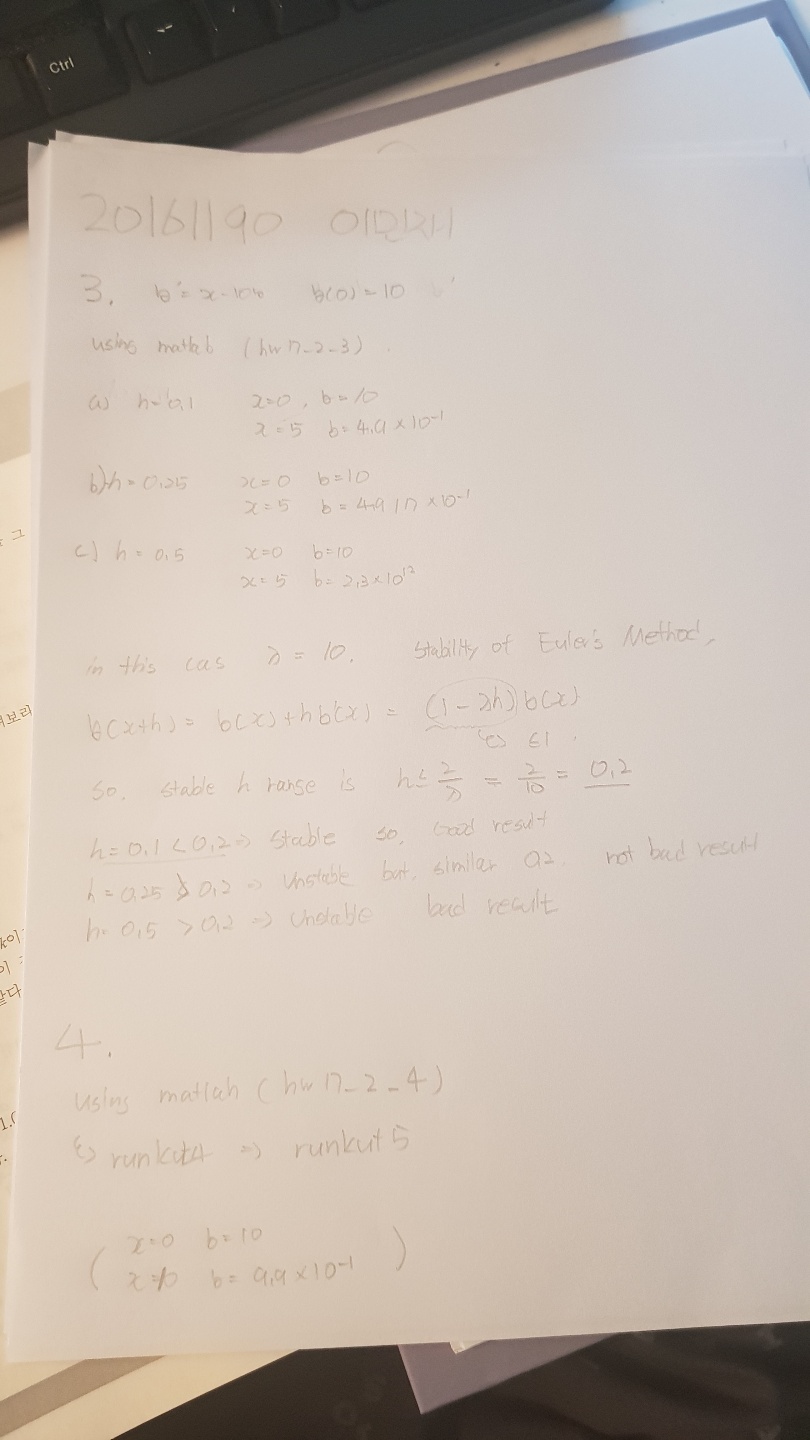 Ctrl
20161190
3. b' = x-10b b(0) = 10
using matlab (hw 7-2-3)
a) h=0.1 x=0, b=10
x=5 b=4.9×10⁻¹
b) h=0.25 x=0 b=10
x=5 b=4.917×10⁻¹
c) h=0.5 x=0 b=10
x=5 b=2.3×10¹²
in this cas λ = 10. Stability of Euler's Method,
b(x+h) = b(x)+hb'(x) = (1-λh)b(x)
≤1.
So. stable h range is h≤ 2/λ = 2/10 = 0.2
h=0.1 < 0.2 => stable so, Good result
h=0.25 > 0.2 => Unstable but. similar 0.2. not bad result
h=0.5 > 0.2 => Unstable bad result
4.
using matlab (hw 7-2-4)
runkut4 => runkut5
( x=0 b=10 )
x=10 b=9.9×10⁻¹